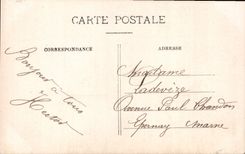 CARTE POSTALE
CORRESPONDANCE
ADRESSE
Bonjour a tous
Madame
Ladevèze
Avenue Paul Chandon
Epernay Marne